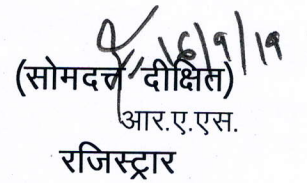 16/9/19
(सोमदत्त दीक्षित)
आर.ए.एस.
रजिस्ट्रार